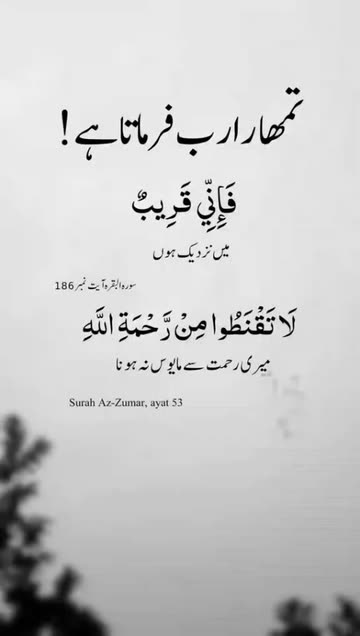 تمھارا رب فرماتا ہے !
فَإِنِّي قَرِيبٌ
میں نزدیک ہوں
سورہ البقرہ آیت نمبر 186
لَا تَقْنَطُوا مِنْ رَّحْمَةِ اللَّهِ
میری رحمت سے مایوس نہ ہونا
Surah Az-Zumar, ayat 53